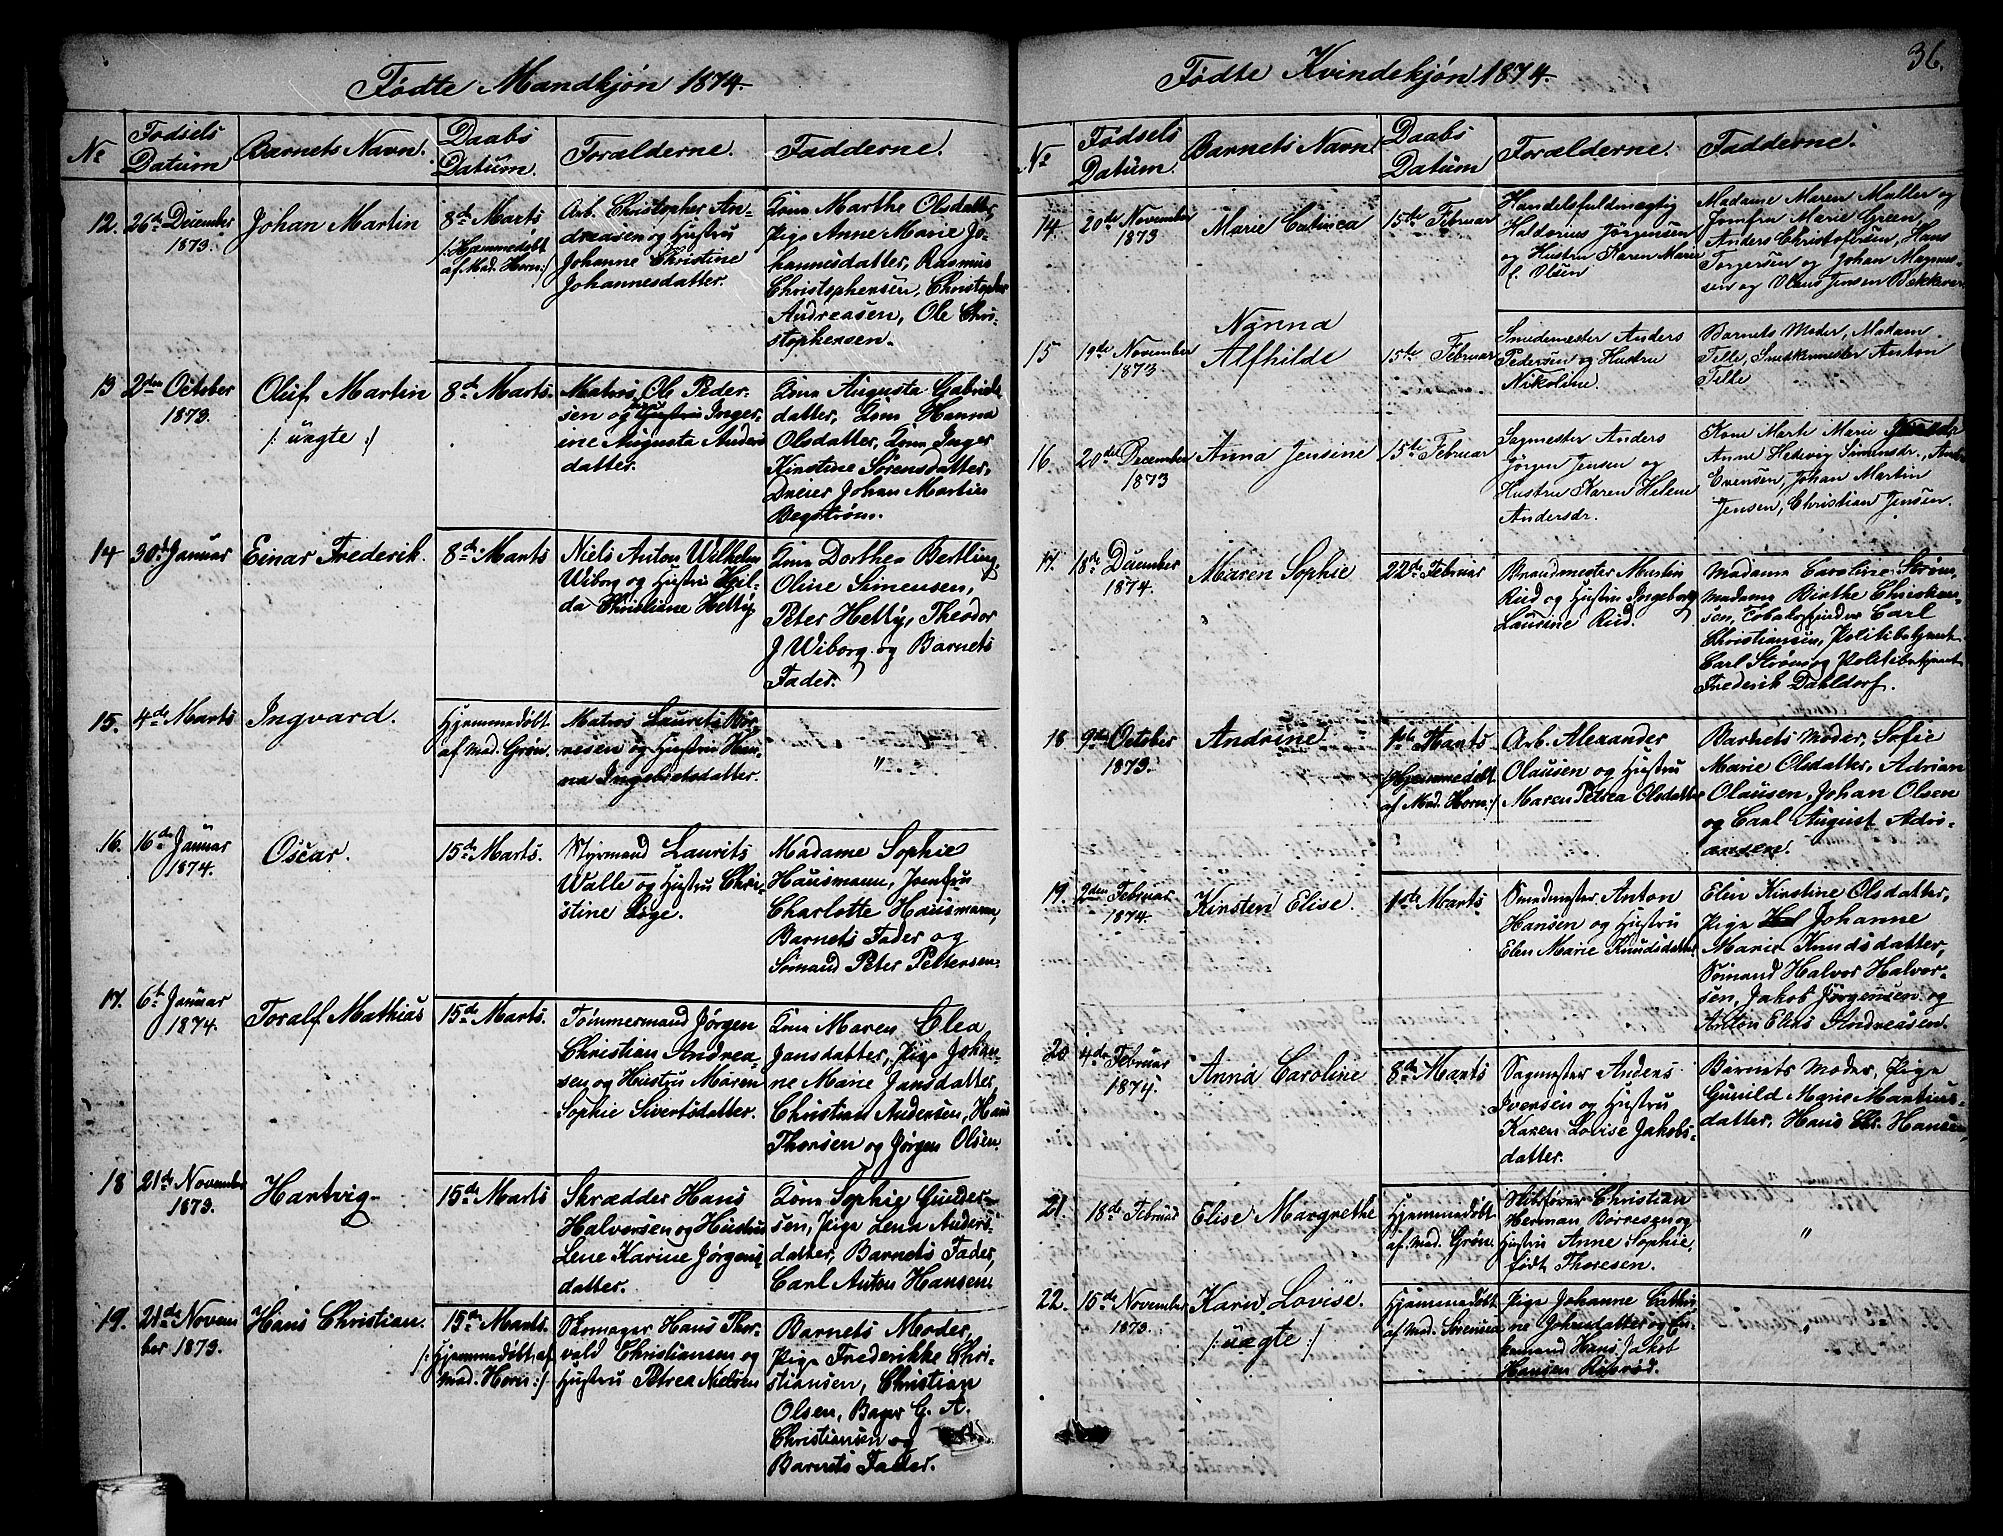 Fødte Mandkjøn 1874.
No
Fødsels Datum
Barnets Navn.
Daabs Datum.
Forælderne.
Fadderne.
12.
26de December
1873.
Johan Martin
8de Marts
/: Hjemmedøbt
af Mad. Horn :/
Arb. Christopher An-
dreasen og Hustru
Johanne Christine
Johannesdatter.
Kone Marthe Olsdatter,
Pige Anne Marie Jo-
hannesdatter, Rasmus
Christophersen, Christopher
Andreasen, Ole Chri-
stophersen.
13
2den October
1873.
Oluf Martin
/: uægte :/
8de Marts.
Matros Ole Peder-
sen og Inger-
ine Augusta Anders
datter.
Kone Augusta Gabriels
datter, Kone Hanna
Olsdatter, Kone Inger
Kirstine Sørensdatter,
Dreier Johan Martin
Begstrøm.
14
30de Januar
Einar Frederik.
8de Marts
Niels Anton Wilhelm
Wiborg og Hustru Hil-
da Christiane Heltzy
Kone Dorthea Bertling,
Oline Simensen,
Peter Heltzy, Theodor
J Wiborg og Barnets
Fader.
15.
4de Marts
Ingvard.
Hjemmedøbt
af Mad. Grøn.
Matros Laurits Bør-
resen og Hustru Han-
na Ingebretsdatter.
"
16.
16de Januar
1874.
Oscar.
15de Marts.
Styrmand Laurits
Walle og Hustru Chri-
stine Loge.
Madame Sophie
Hausmann, Jomfru
Charlotte Hausmann,
Barnets Fader og
Sømand Peter Pettersen.
17.
6te Januar
1874.
Toralf Mathias
15de Marts.
Tømmermand Jørgen
Christian Andrea-
sen og Hustru Maren
Sophie Sivertsdatter.
Kone Maren Elea
Jansdatter, Pige Johan-
ne Marie Jansdatter,
Christian Andersen, Hans
Thorsen og Jørgen Olsen.
18
21de November
1873.
Hartvig
15de Marts
Skrædder Hans
Halvorsen og Hustru
Lene Karine Jørgens
datter.
Kone Sophie Gunder-
sen, Pige Lena Anders
datter, Barnets Fader,
Carl Anton Hansen
19.
21de Novem
ber 1873.
Hans Christian.
15de Marts.
/: Hjemmedøbt af
Mad. Horn :/
Skomager Hans Thor-
vald Christiansen og
Hustru Petrea Nielsen
Barnets Moder,
Pige Frederikke Chri-
stiansen, Christian
Olsen, Bager G. A.
Christiansen og
Barnets Fader.
36.
Fødte Kvindekjøn 1874.
No
Fødsels Datum.
Barnets Navn
Daabs Datum
Forælderne.
Fadderne.
14.
20de November
1873
Marie Catinca
15de Februar
Handelsfuldmægtig
Haldorius Jørgensen
og Hustru Karen Marie
f. Olsen
Madame Maren Møller og
Jomfru Marie Green,
Anders Christofersen, Hans
Torgersen og Johan Magnus-
sen og Olaus Jensen
15
19de November
1873
Nanna
Alfhilde
15de Februar
Smedemester Anders
Pedersen og Hustru
Nikoline.
Barnets Moder, Madam
Tille, Anton
Tille
16.
20de December
1873
Anna Jensine
15de Februar
Sagmester Anders
Jørgen Jensen og
Hustru Karen Helene
Andersdr.
Kone Marte Marie
Anne Hedevig Simensdr.,
Evensen, Johan Martin
Jensen, Christian Jensen.
17.
18de December
1874.
Maren Sophie
22de Februar
Brandmester Martin
Ried og Hustru Ingeborg
Laurine Ried.
Madame Caroline Strøm,
Madame Birthe Christian-
sen, Carl
Christiansen, Politibetjent
Carl Strøm og Politibetjent
Frederik Dahldorf.
18
9de October
1873.
Andrine
1ste Marts
/: Hjemmedøbt
af Mad. Horn :/
Arb. Alexander
Olausen og Hustru
Maren Petrea Olsdatter
Barnets Moder, Sofie
Marie Olsdatter, Adrian
Olausen, Johan Olsen
og Carl August Adri-
ansen.
19.
2den Februar
1874.
Kirsten Elise.
1ste Marts
Smedmester Anton
Hansen og Hustru
Elen Marie Knudsdatter
Elen Kirstine Olsdatter,
Pige Johanne
Marie Knudsdatter,
Sømand Halvor Halvor-
sen, Jakob Jørgensen og
Anton Elias Andreasen.
20
4de Februar
1874.
Anna Caroline
8de Marts
Sagmester Anders
Iversen og Hustru
Karen Lovise Jakobs-
datter.
Barnets Moder, Pige
Gunild Marie Martins-
datter, Hans Chr. Hansen,
21
18de Februar
Elise Margrethe
Hjemmedøbt
af Mad. Grøn.
Skibsfører Christian
Herman, Børresen og
Hustru Anne Sophie,
født Thoresen.
"
22.
15de November
1873.
Karen Lovise.
/: uægte :/
Hjemmedøbt
af Mad. Sørensen
Pige Johanne Cathri
ne Johnsdatter og En-
kemand Hans Jakob
Hansen
"